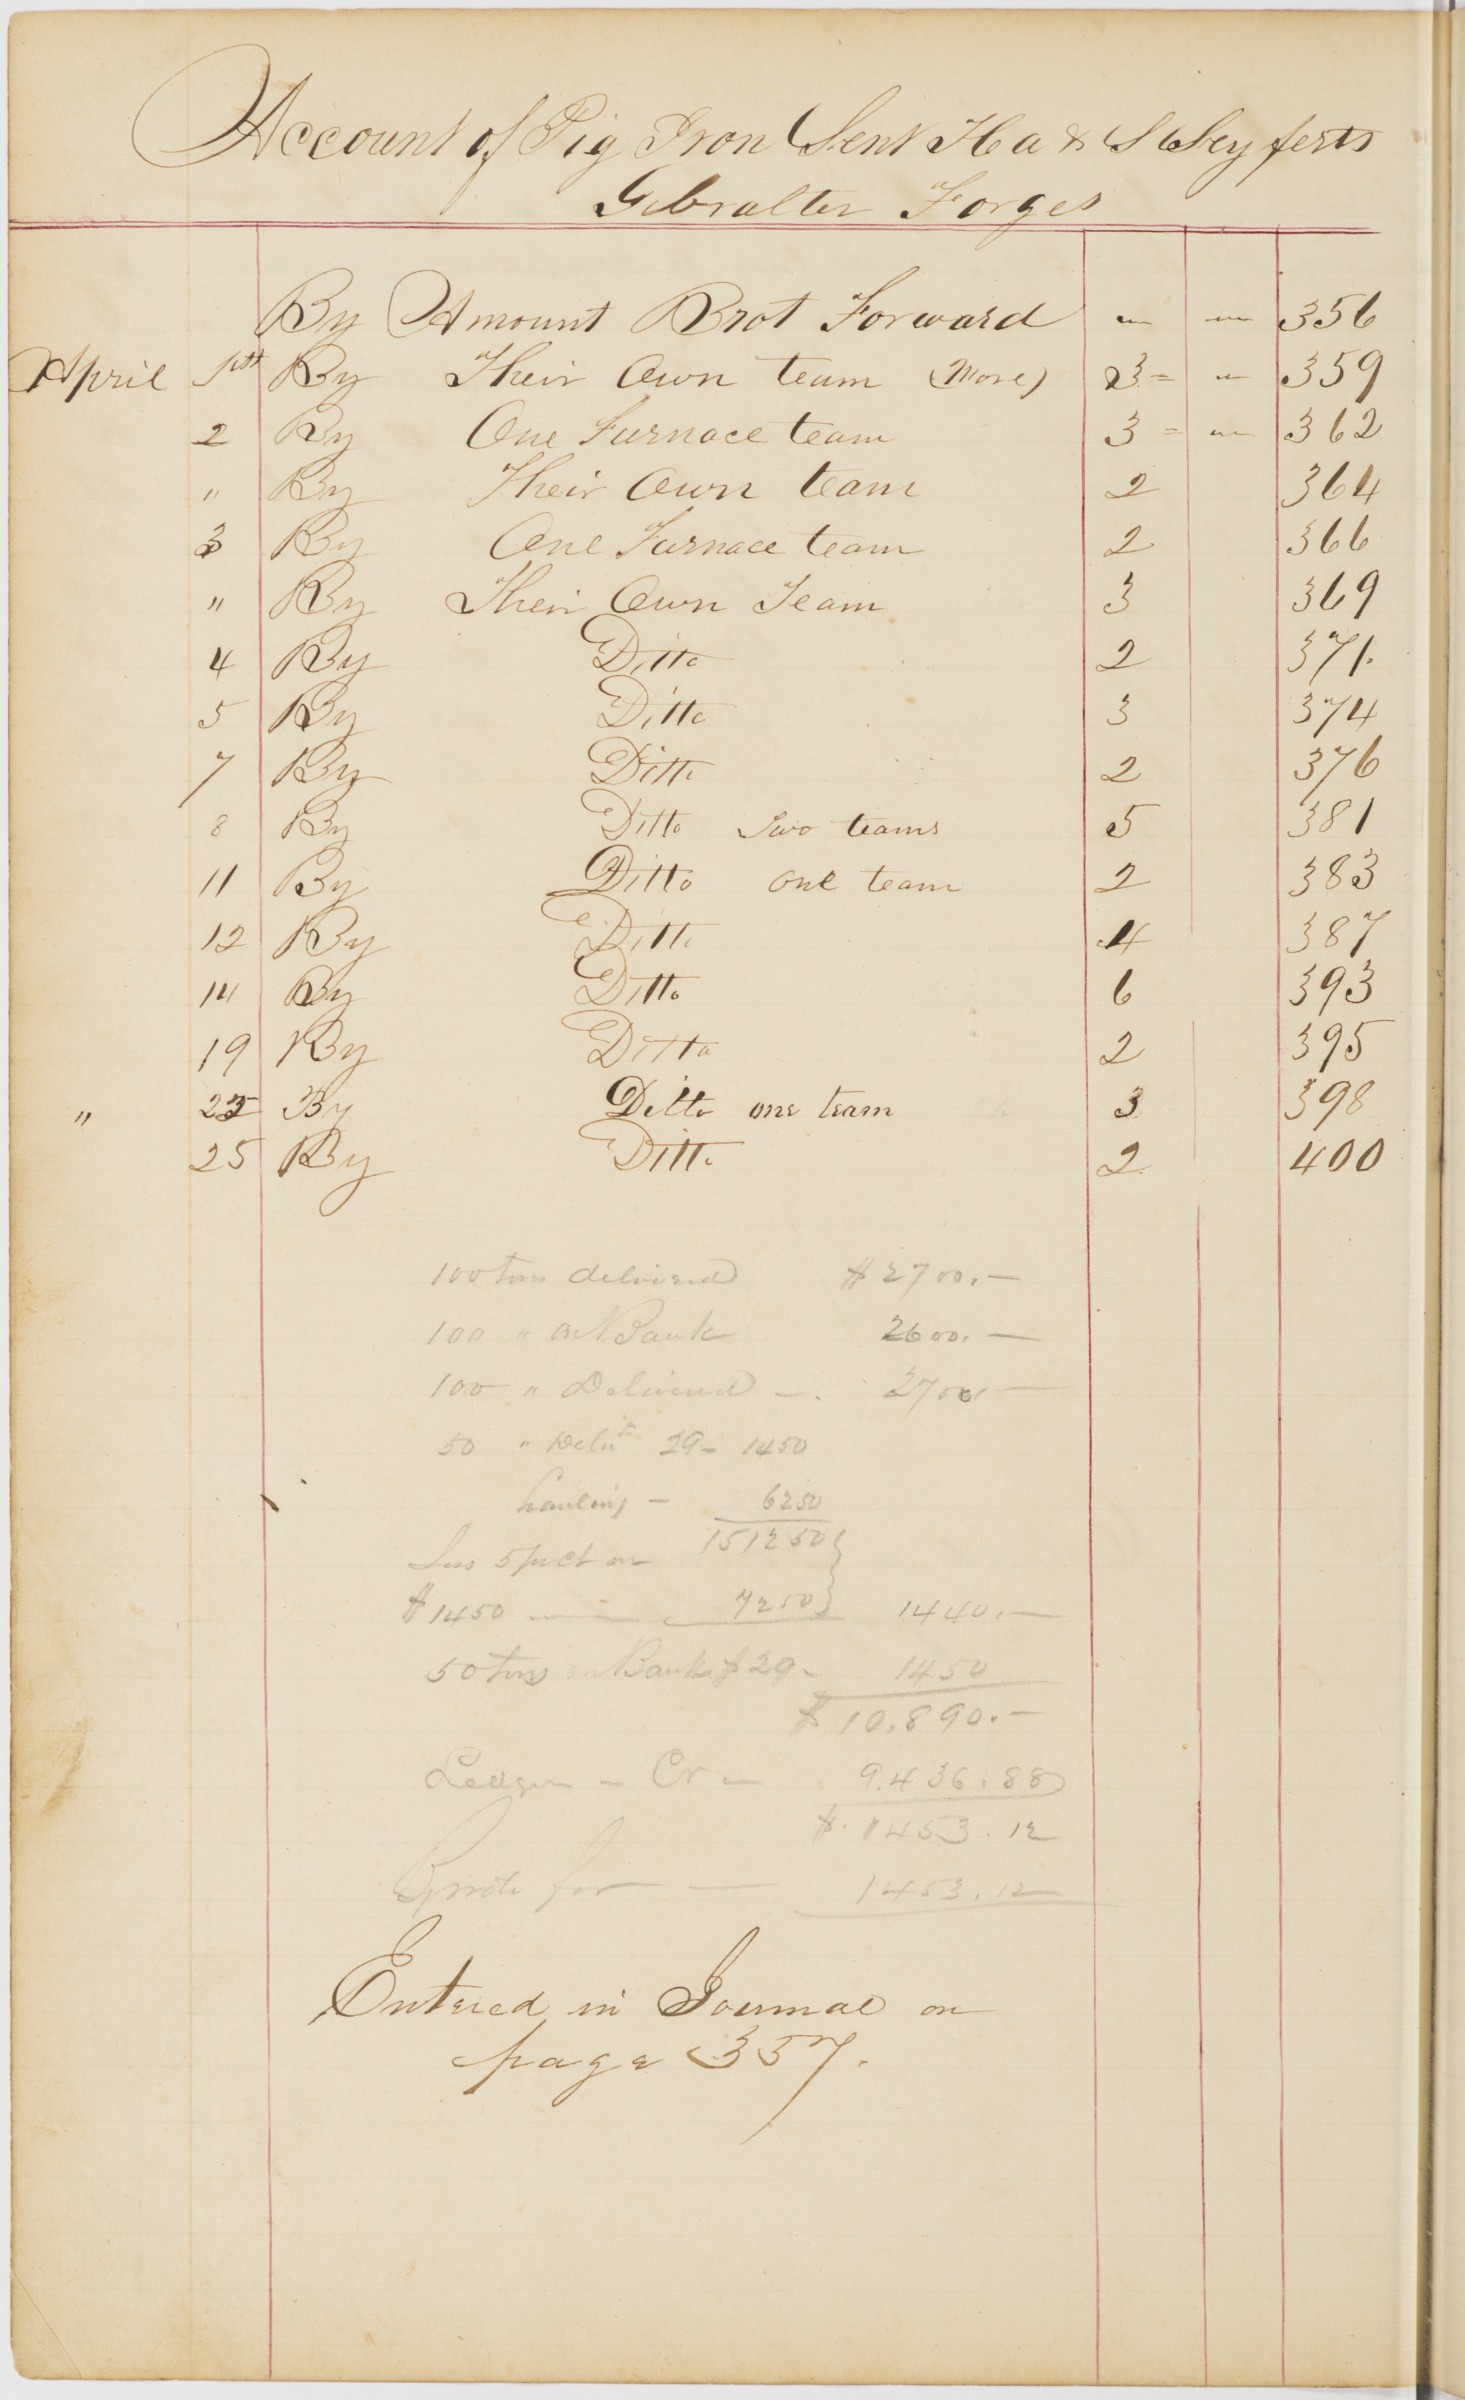 Account of Pig Iron Sent H a & S Seyferts
Gibralter Forges
By Amount Brot Forward " " 356
April 1st By Their Own team (More) 3 = " 359
2 By One Furnace team 3 = " 362
" By Their Own team 2 364
3 By One Furnace team 2 366
" By Their Own Team 3 369
4 By Ditto 2 371.
5 By Ditto 3 374
7 By Ditto 2 376
8 By Ditto Two teams 5 381
11 By Ditto one team 2 383
12 By Ditto 4 387
14 By Ditto 6 393
19 By Ditto 2 395
" 23 By Ditto one team 3 398
25 By Ditto 2 400
100 tons delivered $2700.—
100 " on Bank 2600.—
100 " Delivered —. 2700—
50 " Deld 29 — 1450
hauling — 6250
151250
Less 5 pr ct on
$1450 — 7250 1440.—
50 tons on Bank $29 — 1450
$10,890.—
Ledger — Cr — 9.436.88
$.1453.12
for — 1453.12
Entered in Journal on
page 357.